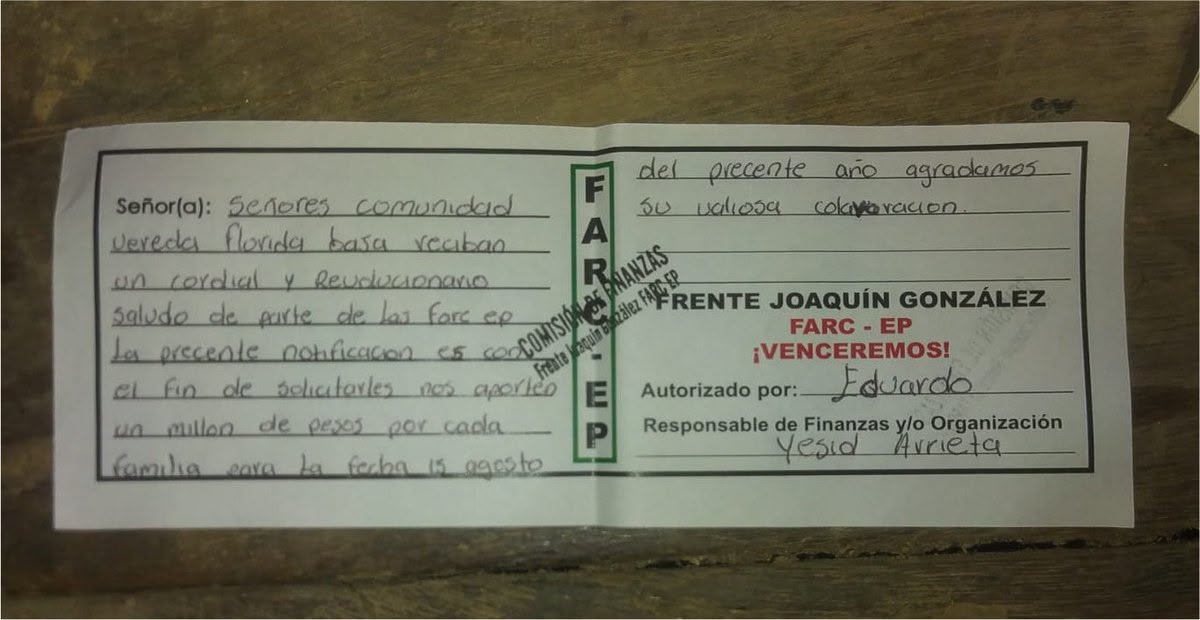 Señor(a): Señores comunidad
vereda florida baja reciban
un cordial y Revulucionario
saludo de parte de las farc ep
La precente notificacion es con
el fin de solicitarles nos aporten
un millon de pesos por cada
familia para la fecha 15 agosto
FARC-EP
COMISIÓN DE FINANZAS
Frente Joaquín González FARC EP
del precente año agradamos
su valiosa colavoracion.
FRENTE JOAQUÍN GONZÁLEZ
FARC - EP
¡VENCEREMOS!
Autorizado por: Eduardo
Responsable de Finanzas y/o Organización
Yesid Arrieta